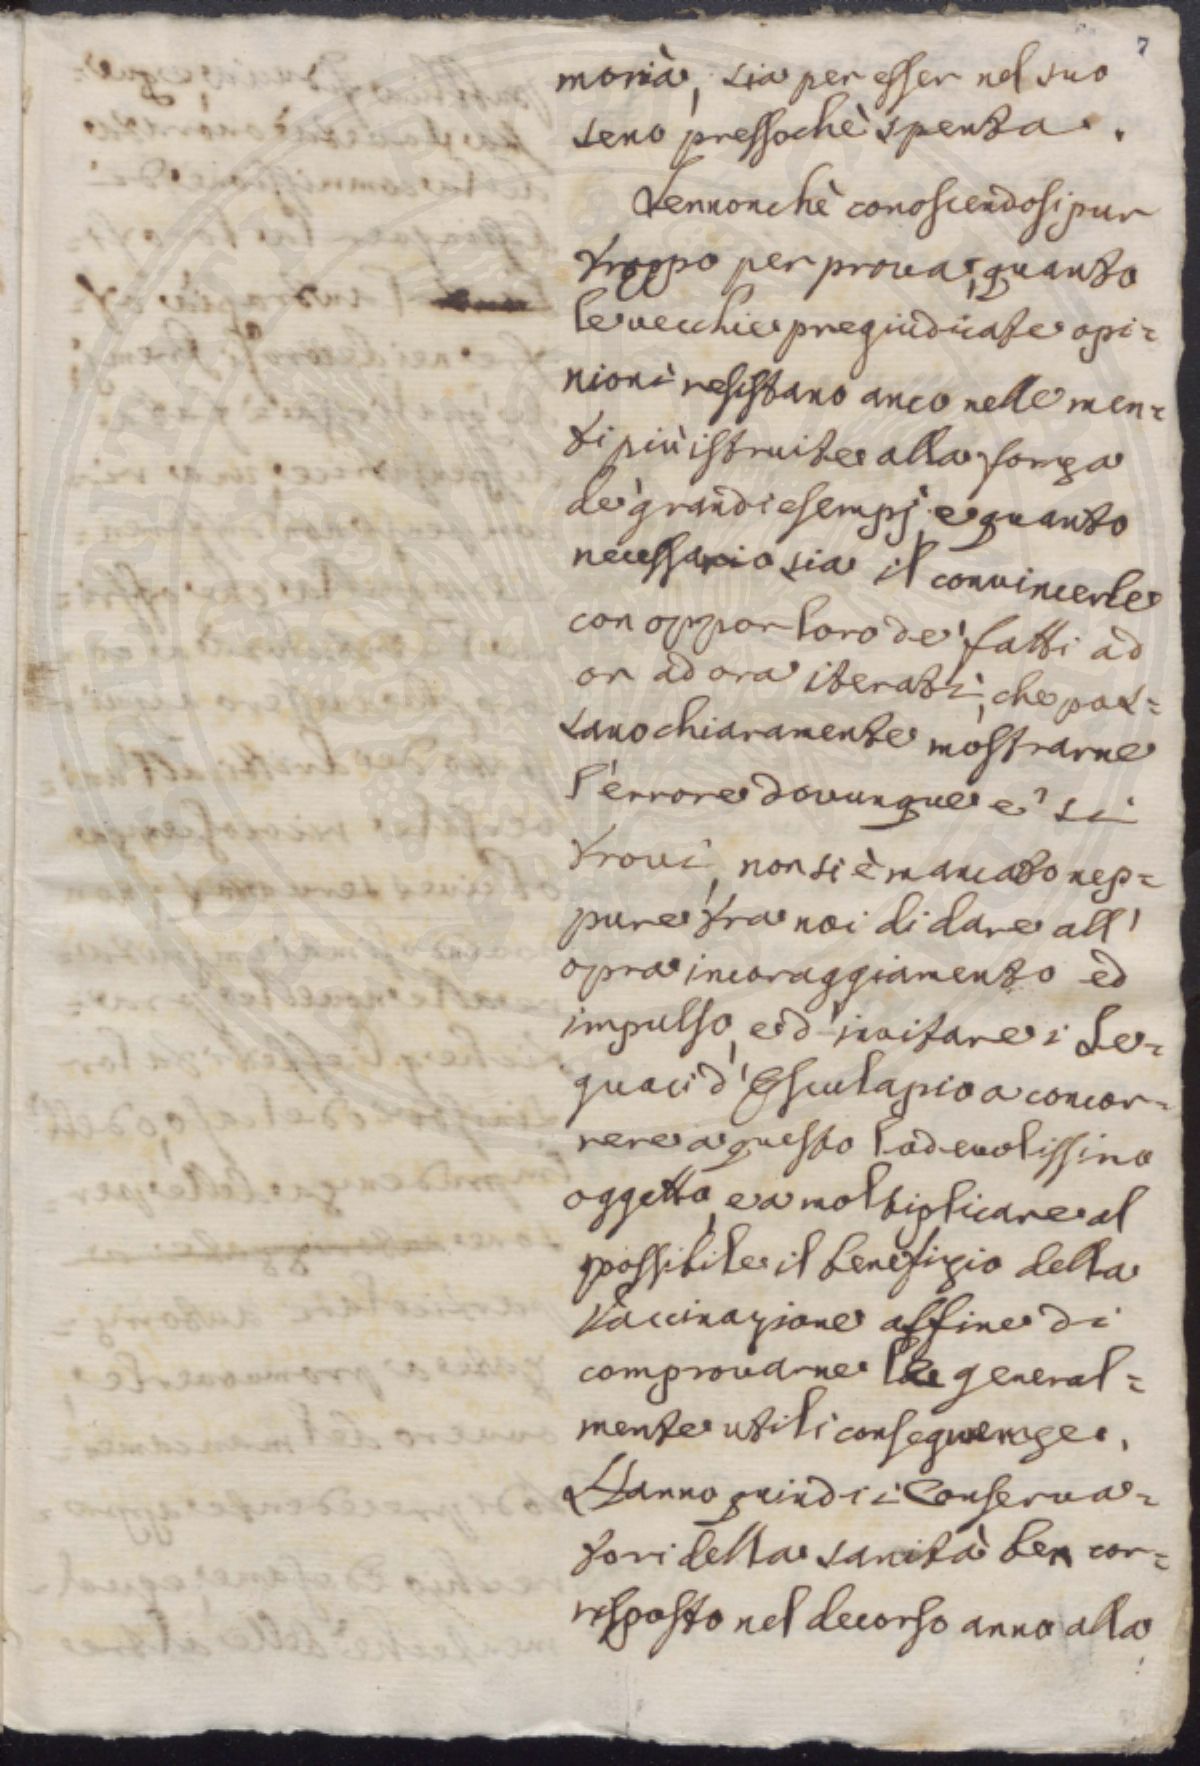 7
moria, sia per esser nel suo
seno pressochè spenta.
Sennonchè conoscendosi pur
troppo per prova, quanto
le vecchie pregiudicate opi=
nioni resistano anco nelle men=
ti più istruite alla forza
de' grandi esempj, e quanto
necessario sia il convincerle
con oppor loro de' fatti ad
or ad ora iterati, che pos=
sano chiaramente mostrarne
l'errore dovunque e' si
trovi, non si è mancato nep=
pure tra noi di dare all'
opra incoraggiamento ed
impulso, ed invitare i Se=
guaci d'Esculapio a concor=
rere a questo lodevolissimo
oggetto, e a moltiplicare al
possibile il benefizio della
Vaccinazione affine di
comprovarne le general=
mente utili conseguenze.
Hanno quindi i Conserva=
tori della sanità ben cor=
risposto nel decorso anno alla